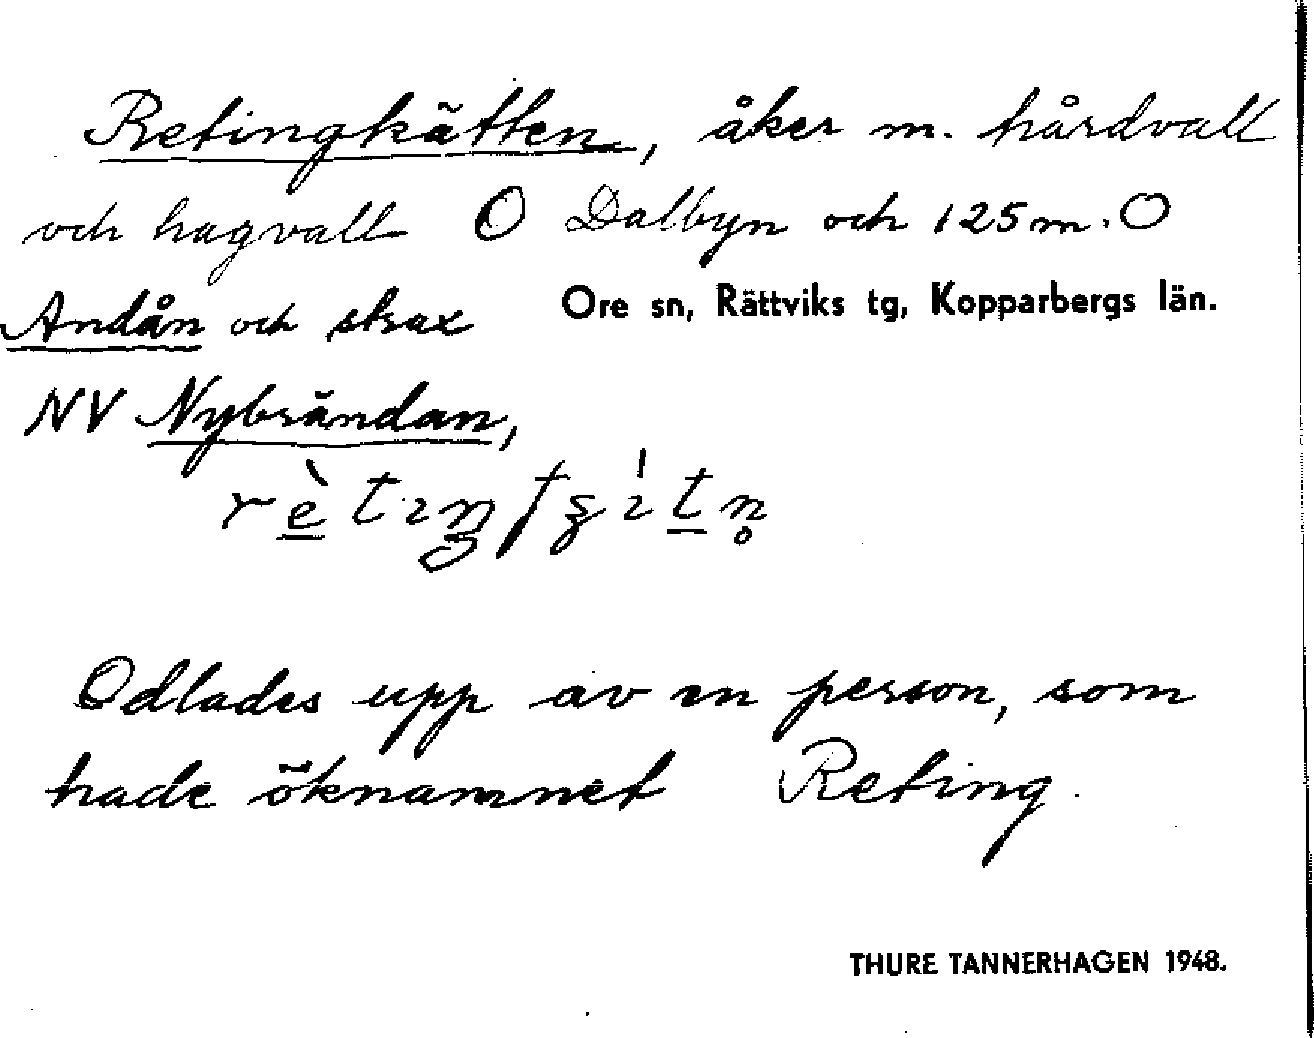 Retingkätten, åker m. hårdvall
och hagvall O Dalbyn och 125 m. O
Andån och strax
Ore sn, Rättviks tg, Kopparbergs län.
NV Nybrändan,
Odlades upp av en person, som
hade öknamnet Reting.
THURE TANNERHAGEN 1948.